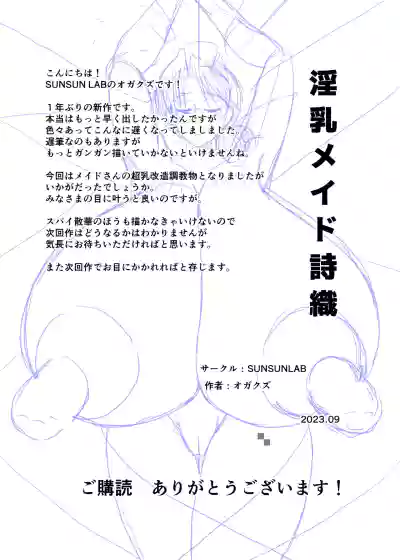 こんにちは！
SUNSUN LABのオガクズです！
１年ぶりの新作です。
本当はもっと早く出したかったんですが
色々あってこんなに遅くなってしましました。
遅筆なのもありますが
もっとガンガン描いていかないといけませんね。
今回はメイドさんの超乳改造調教物となりましたが
いかがだったでしょうか。
みなさまの目に叶うと良いのですが。
スパイ散華のほうも描かなきゃいけないので
次回作はどうなるかはわかりませんが
気長にお待ちいただければと思います。
また次回作でお目にかかれればと存じます。
淫乳メイド詩織
サークル：SUNSUNLAB
作者：オガクズ
2023.09
ご購読　ありがとうございます！